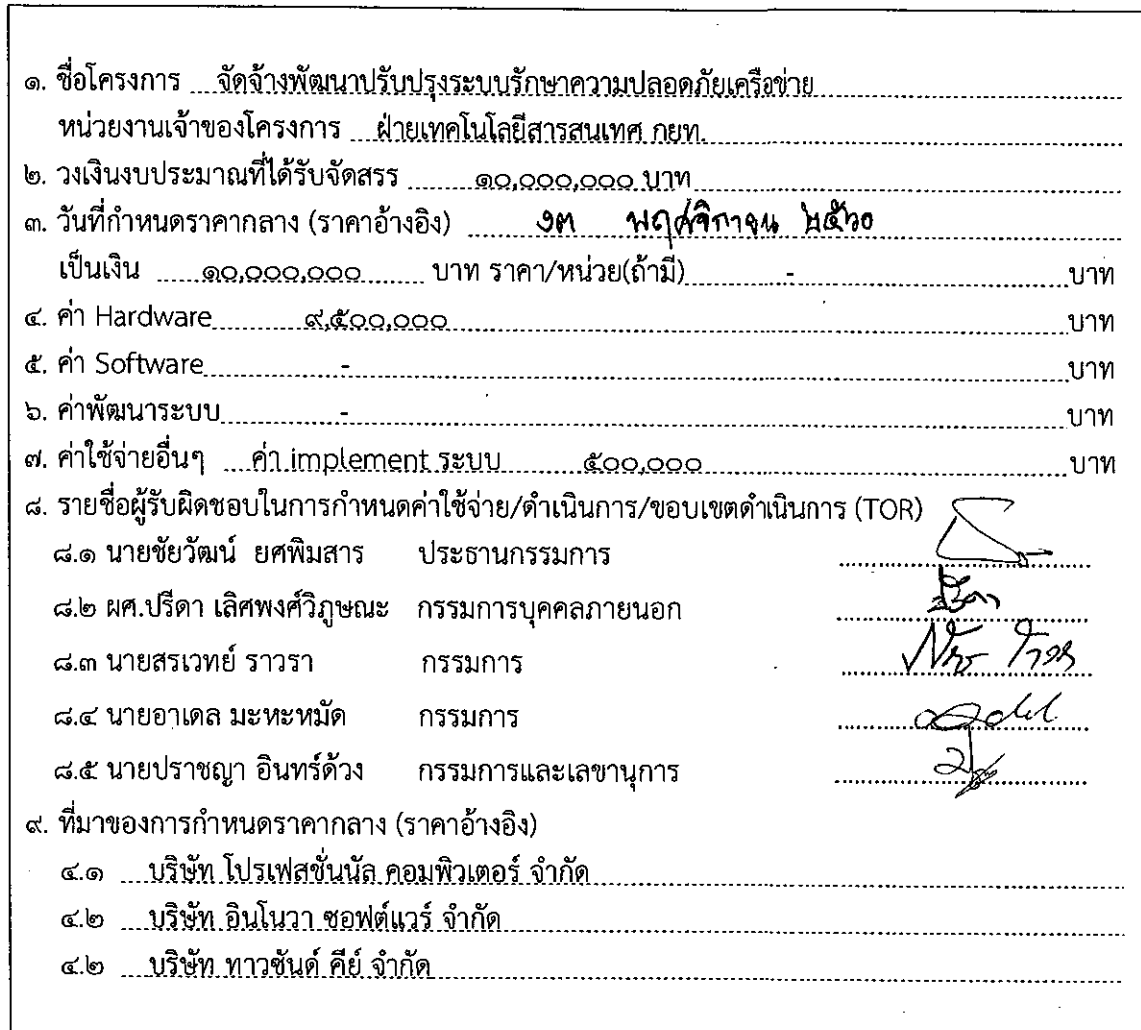 ๑. ชื่อโครงการ จัดจ้างพัฒนาปรับปรุงระบบรักษาความปลอดภัยเครือข่าย
หน่วยงานเจ้าของโครงการ ฝ่ายเทคโนโลยีสารสนเทศ กยท.
๒. วงเงินงบประมาณที่ได้รับจัดสรร ๑๐,๐๐๐,๐๐๐ บาท
๓. วันที่กำหนดราคากลาง (ราคาอ้างอิง) พฤศจิกายน ๒๕๖๐
เป็นเงิน ๑๐,๐๐๐,๐๐๐ บาท ราคา/หน่วย(ถ้ามี) - บาท
๔. ค่า Hardware ๙,๕๐๐,๐๐๐ บาท
๕. ค่า Software - บาท
๖. ค่าพัฒนาระบบ - บาท
๗. ค่าใช้จ่ายอื่นๆ ค่า implement ระบบ ๕๐๐,๐๐๐ บาท
๘. รายชื่อผู้รับผิดชอบในการกำหนดค่าใช้จ่าย/ดำเนินการ/ขอบเขตดำเนินการ (TOR)
๘.๑ นายชัยวัฒน์ ยศพิมสาร ประธานกรรมการ
๘.๒ ผศ.ปรีดา เลิศพงศ์วิภูษณะ กรรมการบุคคลภายนอก
๘.๓ นายสรเวทย์ ราวรา กรรมการ
๘.๔ นายอาเดล มะหะหมัด กรรมการ
๘.๕ นายปราชญา อินทร์ด้วง กรรมการและเลขานุการ
๙. ที่มาของการกำหนดราคากลาง (ราคาอ้างอิง)
๔.๑ บริษัท โปรเฟสชั่นนัล คอมพิวเตอร์ จำกัด
๔.๒ บริษัท อินโนวา ซอฟต์แวร์ จำกัด
๔.๒ บริษัท ทาวซันด์ คีย์ จำกัด